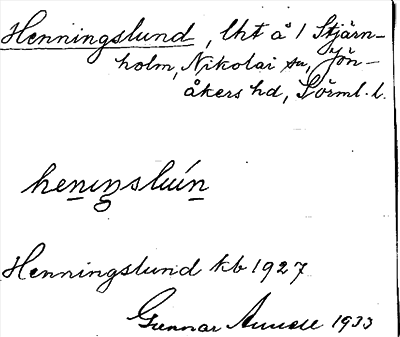 Henningslund, lht å 1 Stjärn-
holm, Nikolai sn, Jön-
åkers hd, Sörml. l.
heningsluın
Henningslund kb 1927
Gunnar 1933